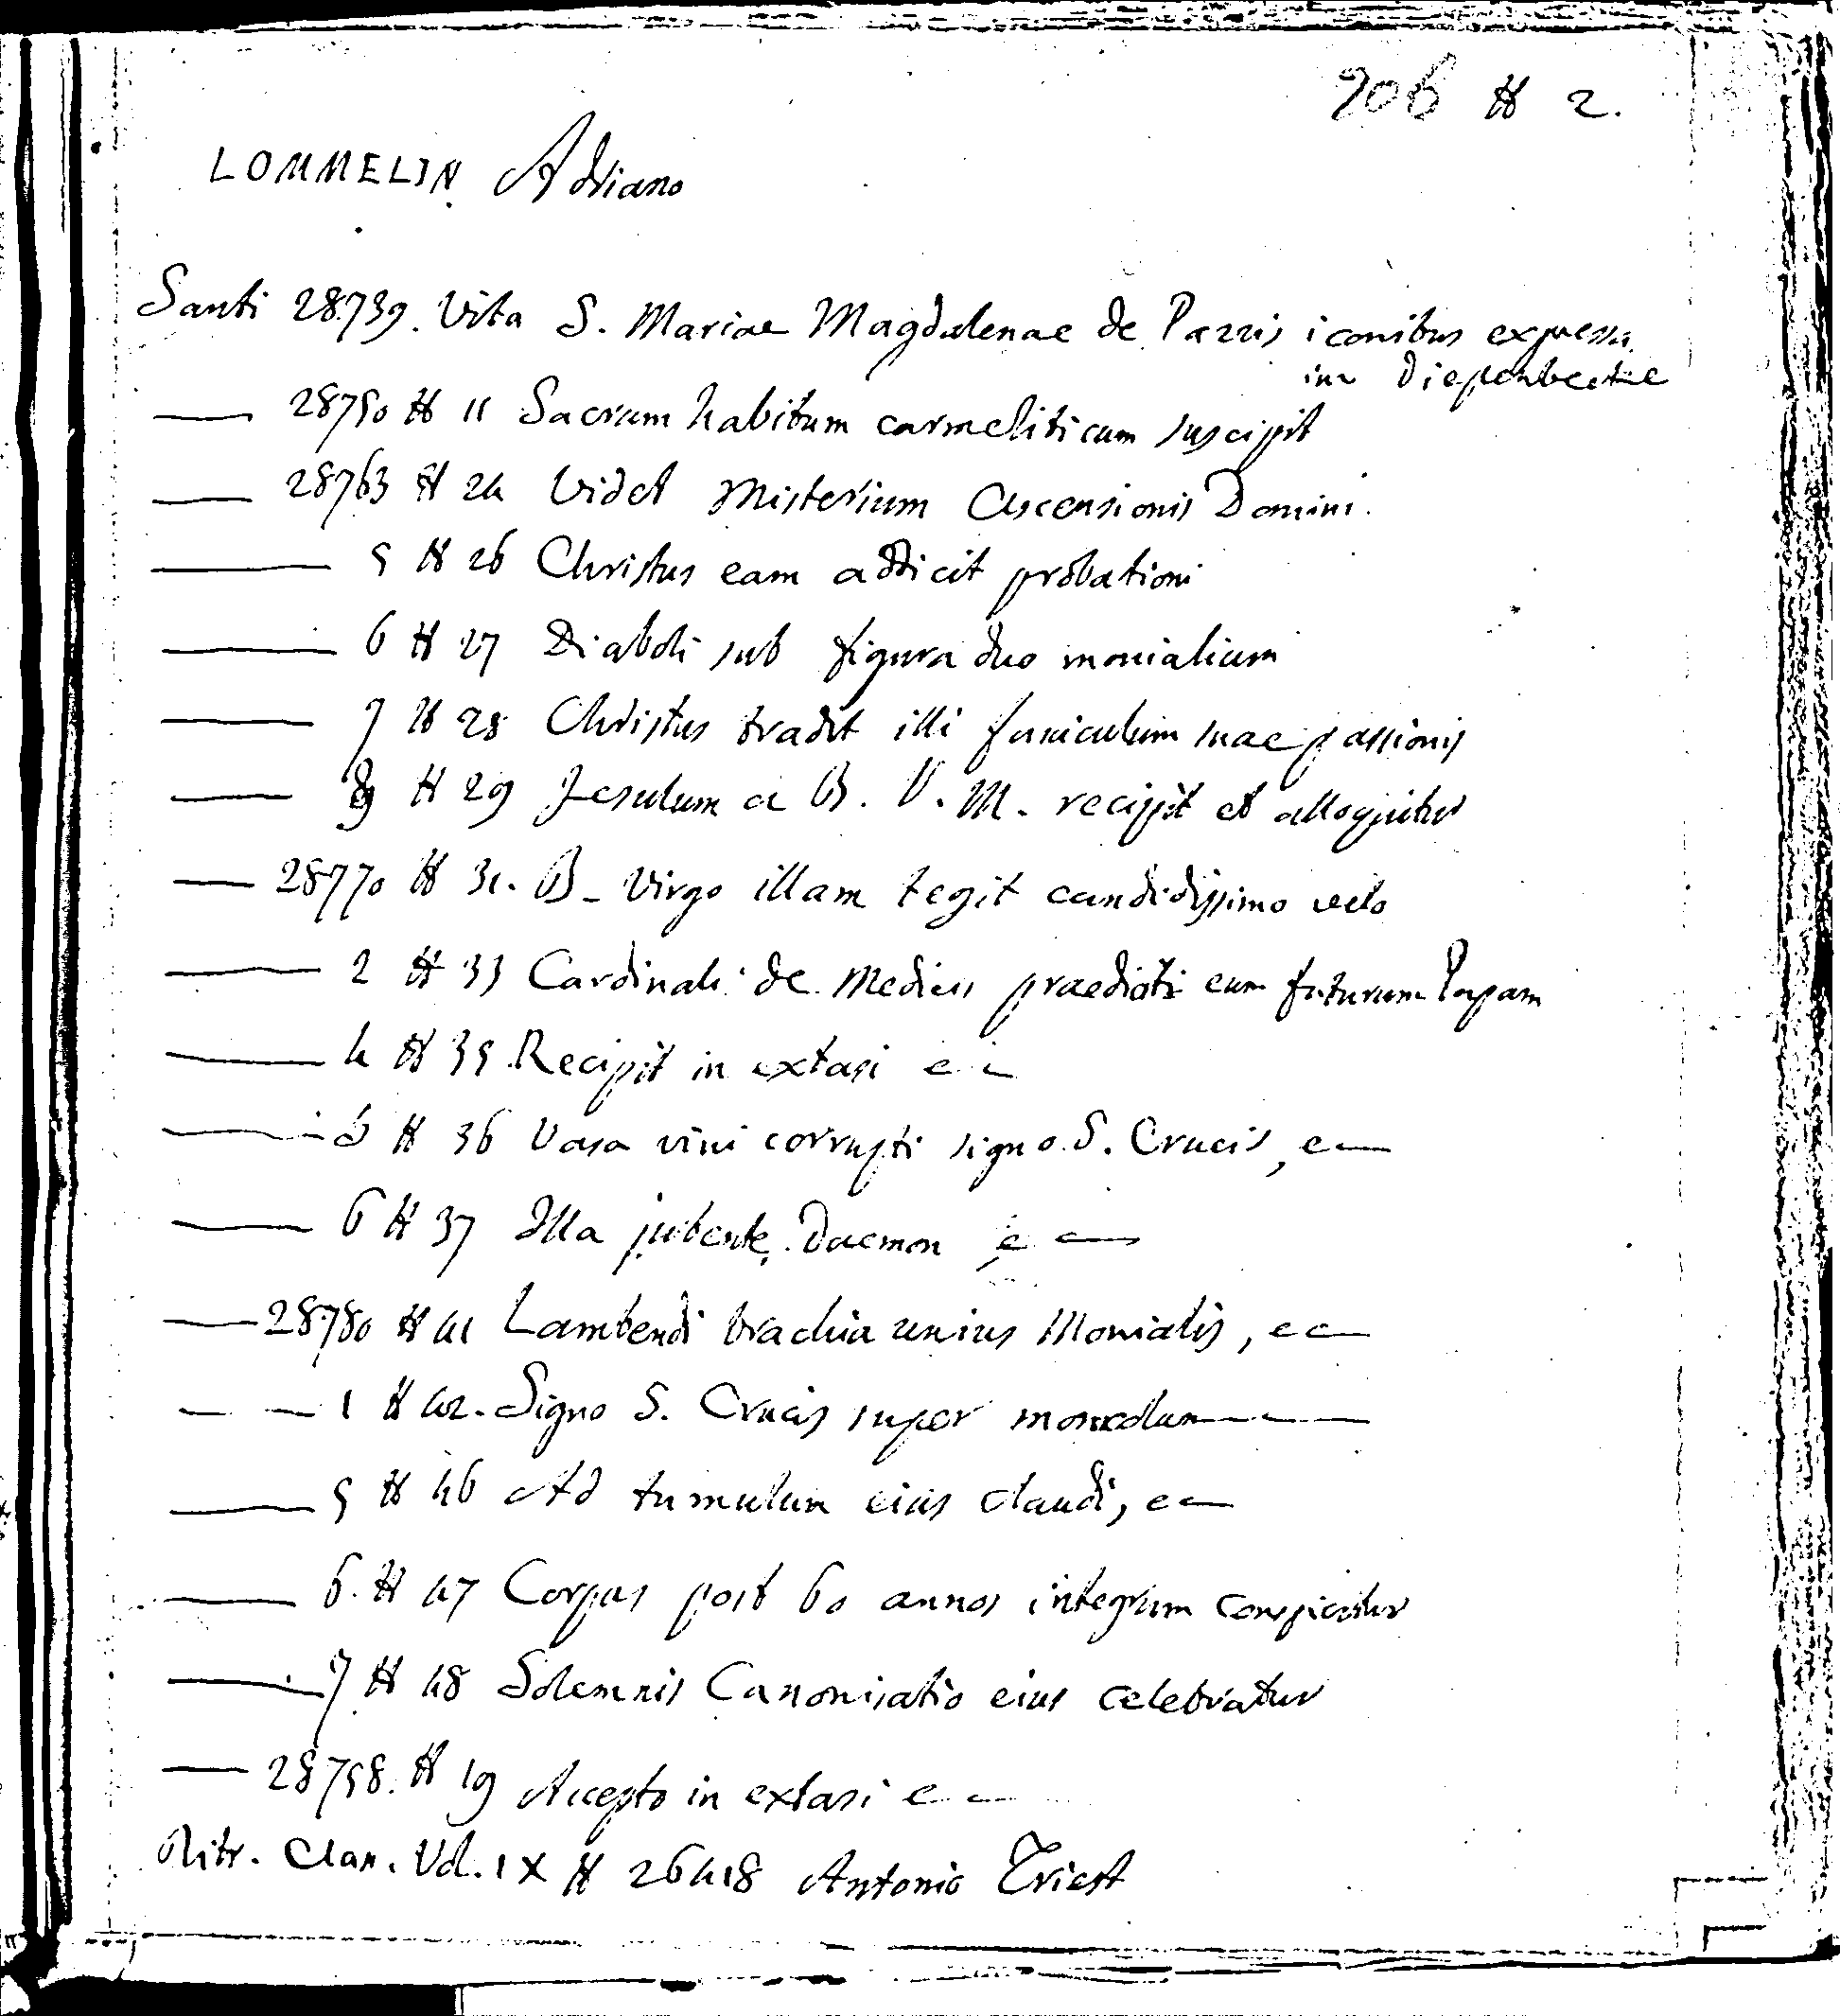 906 # 2.
LOMMELIN Adriano
Santi 28739. Vita S. Mariae Magdalenae de Pazzis iconibus expressa
inv Diepenbecke
— 28750 # 11 Sacrum habitum carmeliticum suscipit
— 28763 # 24 Videt Misterium Ascensionis Domini.
— 5 # 26 Christus eam addicit probationi
— 6 # 27 Diaboli sub figura duo monialium
— 7 # 28 Christus tradit illi funiculum suae passionis
— # 29 Jesulum a B. V. M. recipit et alloquitur
— 28770 # 31. B. Virgo illam tegit candidissimo velo
— 2 # 33 Cardinali de Medicis praedicit eum futurum Papam
— 4 # 35 Recipit in extasi e —
— 5 # 36 Vasa vini corrupti signo S. Crucis, e —
— 6 # 37 Illa jubente, Daemon e —
— 28780 # 41 Lambendi brachia unius Monialis, e —
— — 1 # 42. Signo S. Crucis super —
— 5 # 46 Ad tumulum eius claudi, e —
— 6. # 47 Corpus post 60 annos integrum conspicitur
— 7 # 48 Solemnis Canonisatio eius celebratur
— 28758. # 19 Accepto in extasi e —
Ritr. Clan. Vol. IX # 26418 Antonio Triest